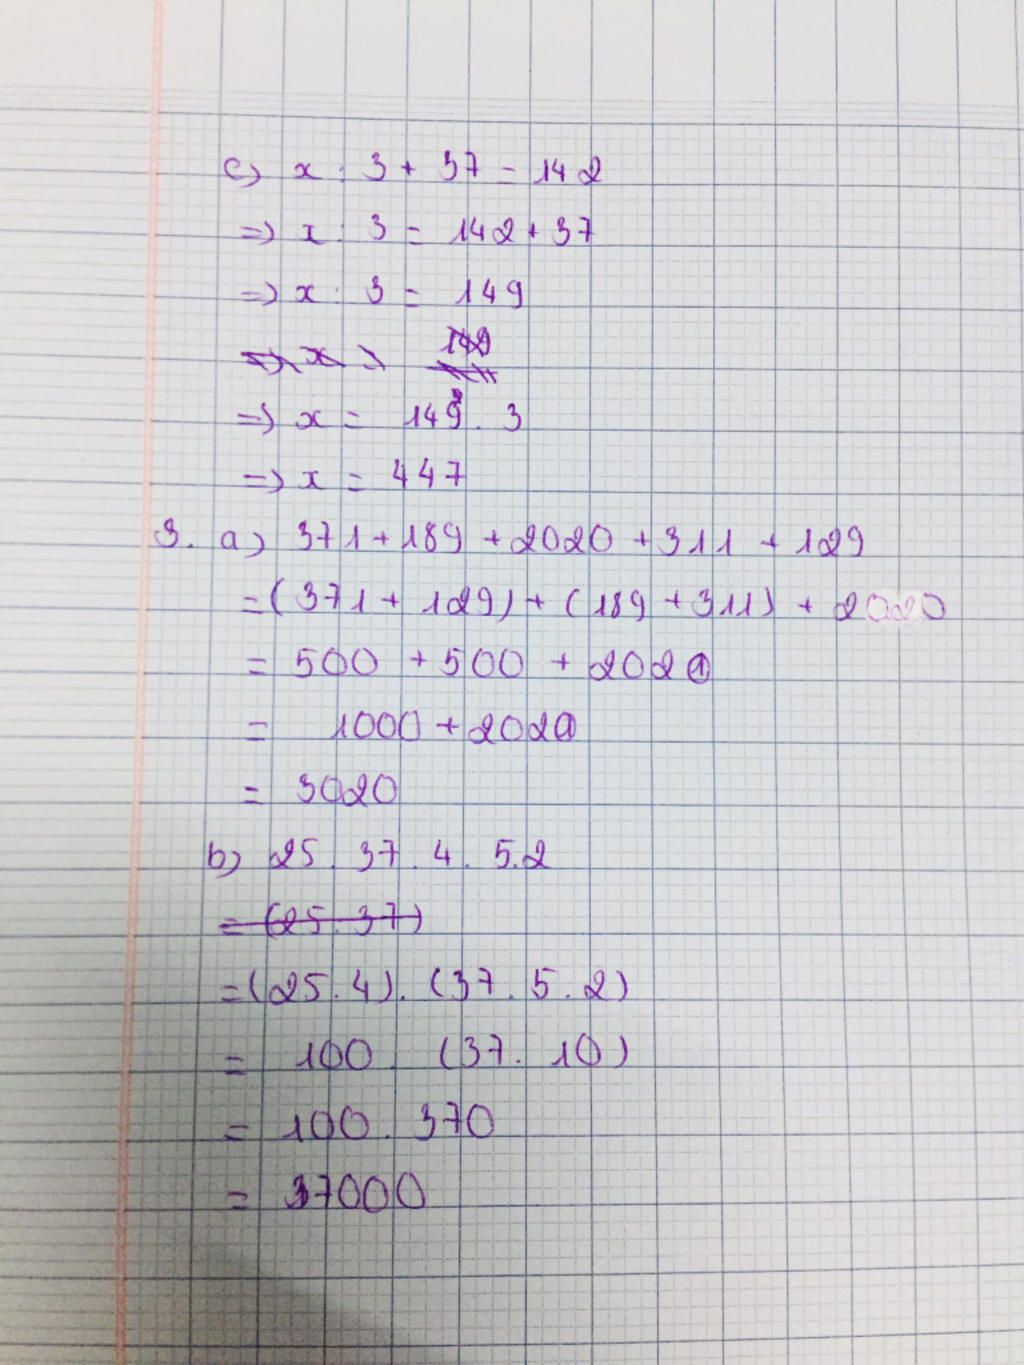 c) x : 3 + 37 = 142
=> x : 3 = 142 + 37
=> x : 3 = 149
=> x = 149 . 3
=> x = 447
3. a) 371 + 189 + 2020 + 311 + 129
= (371 + 129) + (189 + 311) + 2020
= 500 + 500 + 2020
= 1000 + 2020
= 3020
b) 25 . 37 . 4 . 5.2
= (25 . 37)
= (25 . 4) . (37 . 5 . 2)
= 100 . (37 . 10)
= 100 . 370
= 37000